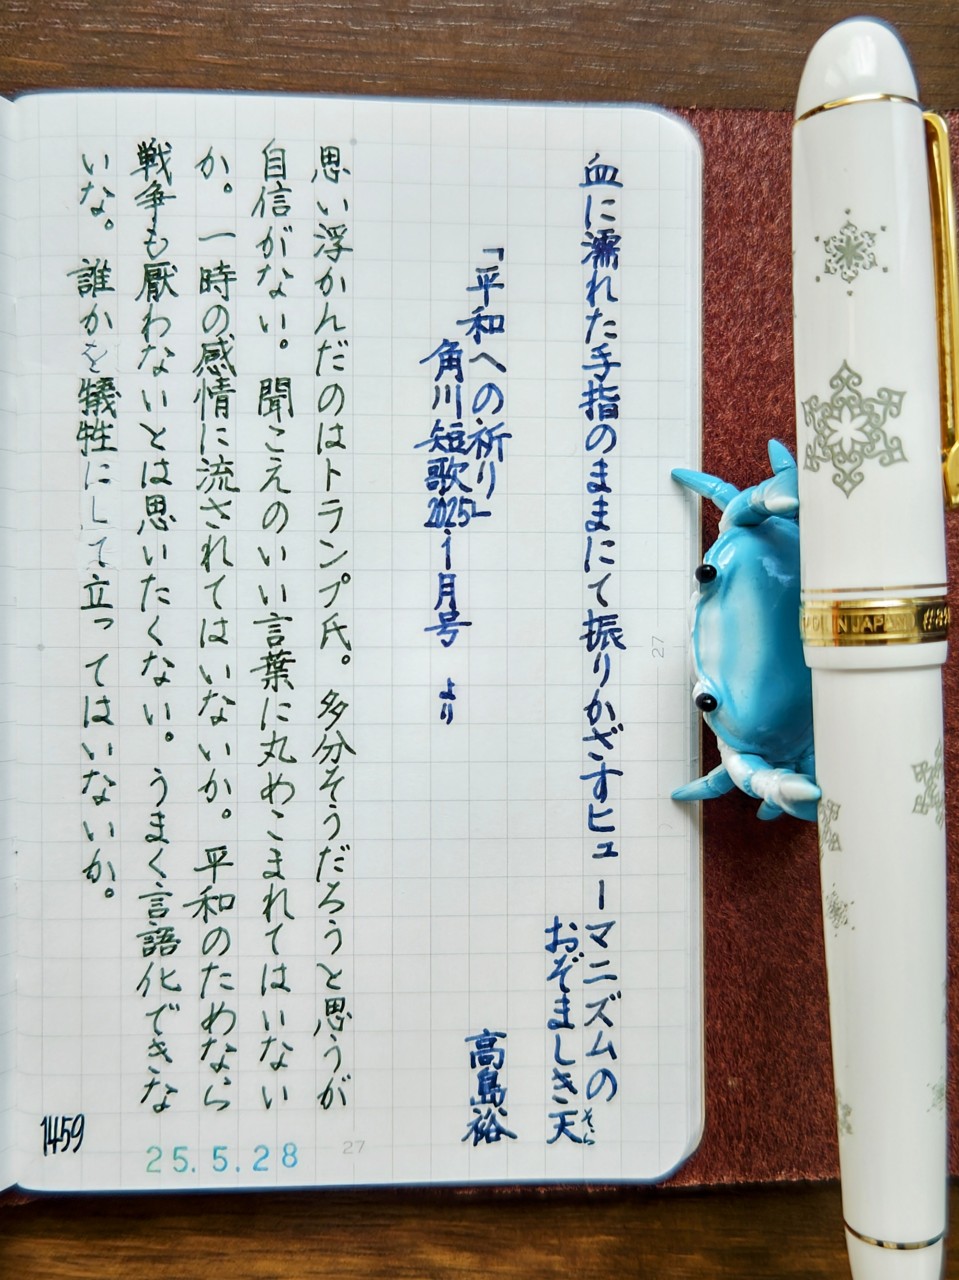 血に濡れた手指のままにて振りかざすヒューマニズムの
おぞましき天
そら
高島裕
「平和への祈り」
角川短歌2025.1月号 より
思い浮かんだのはトランプ氏。多分そうだろうと思うが
自信がない。聞こえのいい言葉に丸めこまれてはいない
か。一時の感情に流されてはいないか。平和のためなら
戦争も厭わないとは思いたくない。うまく言語化できな
いな。誰かを犠牲にして立ってはいないか。
1459
25.5.28
27
27
MADE IN JAPAN